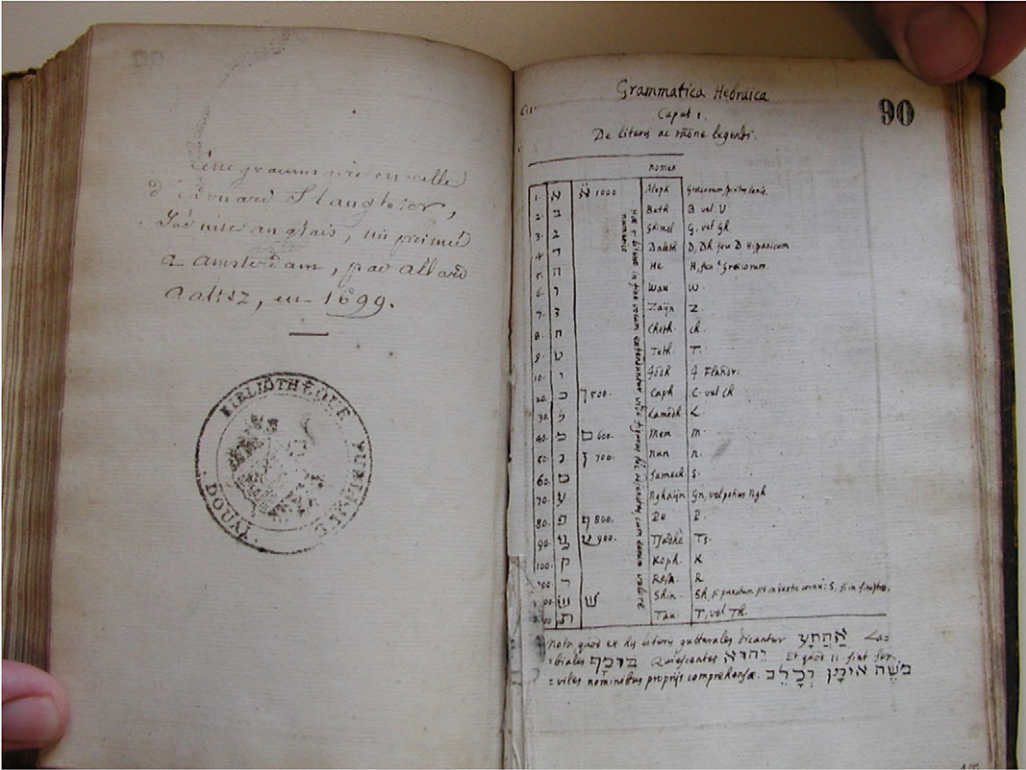 cette grammaire est celle
d'Edouard Slaughter,
Jésuite anglais, imprimée
a amsterdam, par allard
aaltsz, en 1699.
BIBLIOTHÈQUE PUBLIQUE DOUAI
Grammatica Hebraica
90
Caput 1.
De literis ac legendi.
nomen
1. א 1000 Aleph Græcorum spiritus lenis.
2. ב Beth B vel V
3. ג Ghimel G, vel Gh
4. ד Daleth D, Dh seu D Hispanicum
5. ה He H, seu Græcorum.
6. ו Wau W.
7. ז Zaijn Z.
8. ח Cheth. ch.
9. ט Teth. T.
10. י Jodh J
20. כ ך 500. Caph C. vel ch
30. ל Lamedh L.
40. מ ם 600. Mem M.
50. נ ן 700. Nun N.
60. ס Samech S.
70. ע Nghaijn Gn, vel potius Ngh
80. פ ף 800. Pe P.
90. צ ץ 900. Tsadhe Ts.
100. ק Koph. K
ר Resh. R
ש Shin. Sh, si punctum sit in cornu: S, si in sinistro.
ת Tau. T, vel Th.
Hæ literæ in fine vocum
numeros
Nota quod ex his literis gutturales dicantur אַהְחָע La=
=biales בומף Quiescentes יהוא Et quod 11 sint ser=
=viles nominibus proprijs comprehensæ. מֹשֶׁה אֵיתָן וְכָלֵב